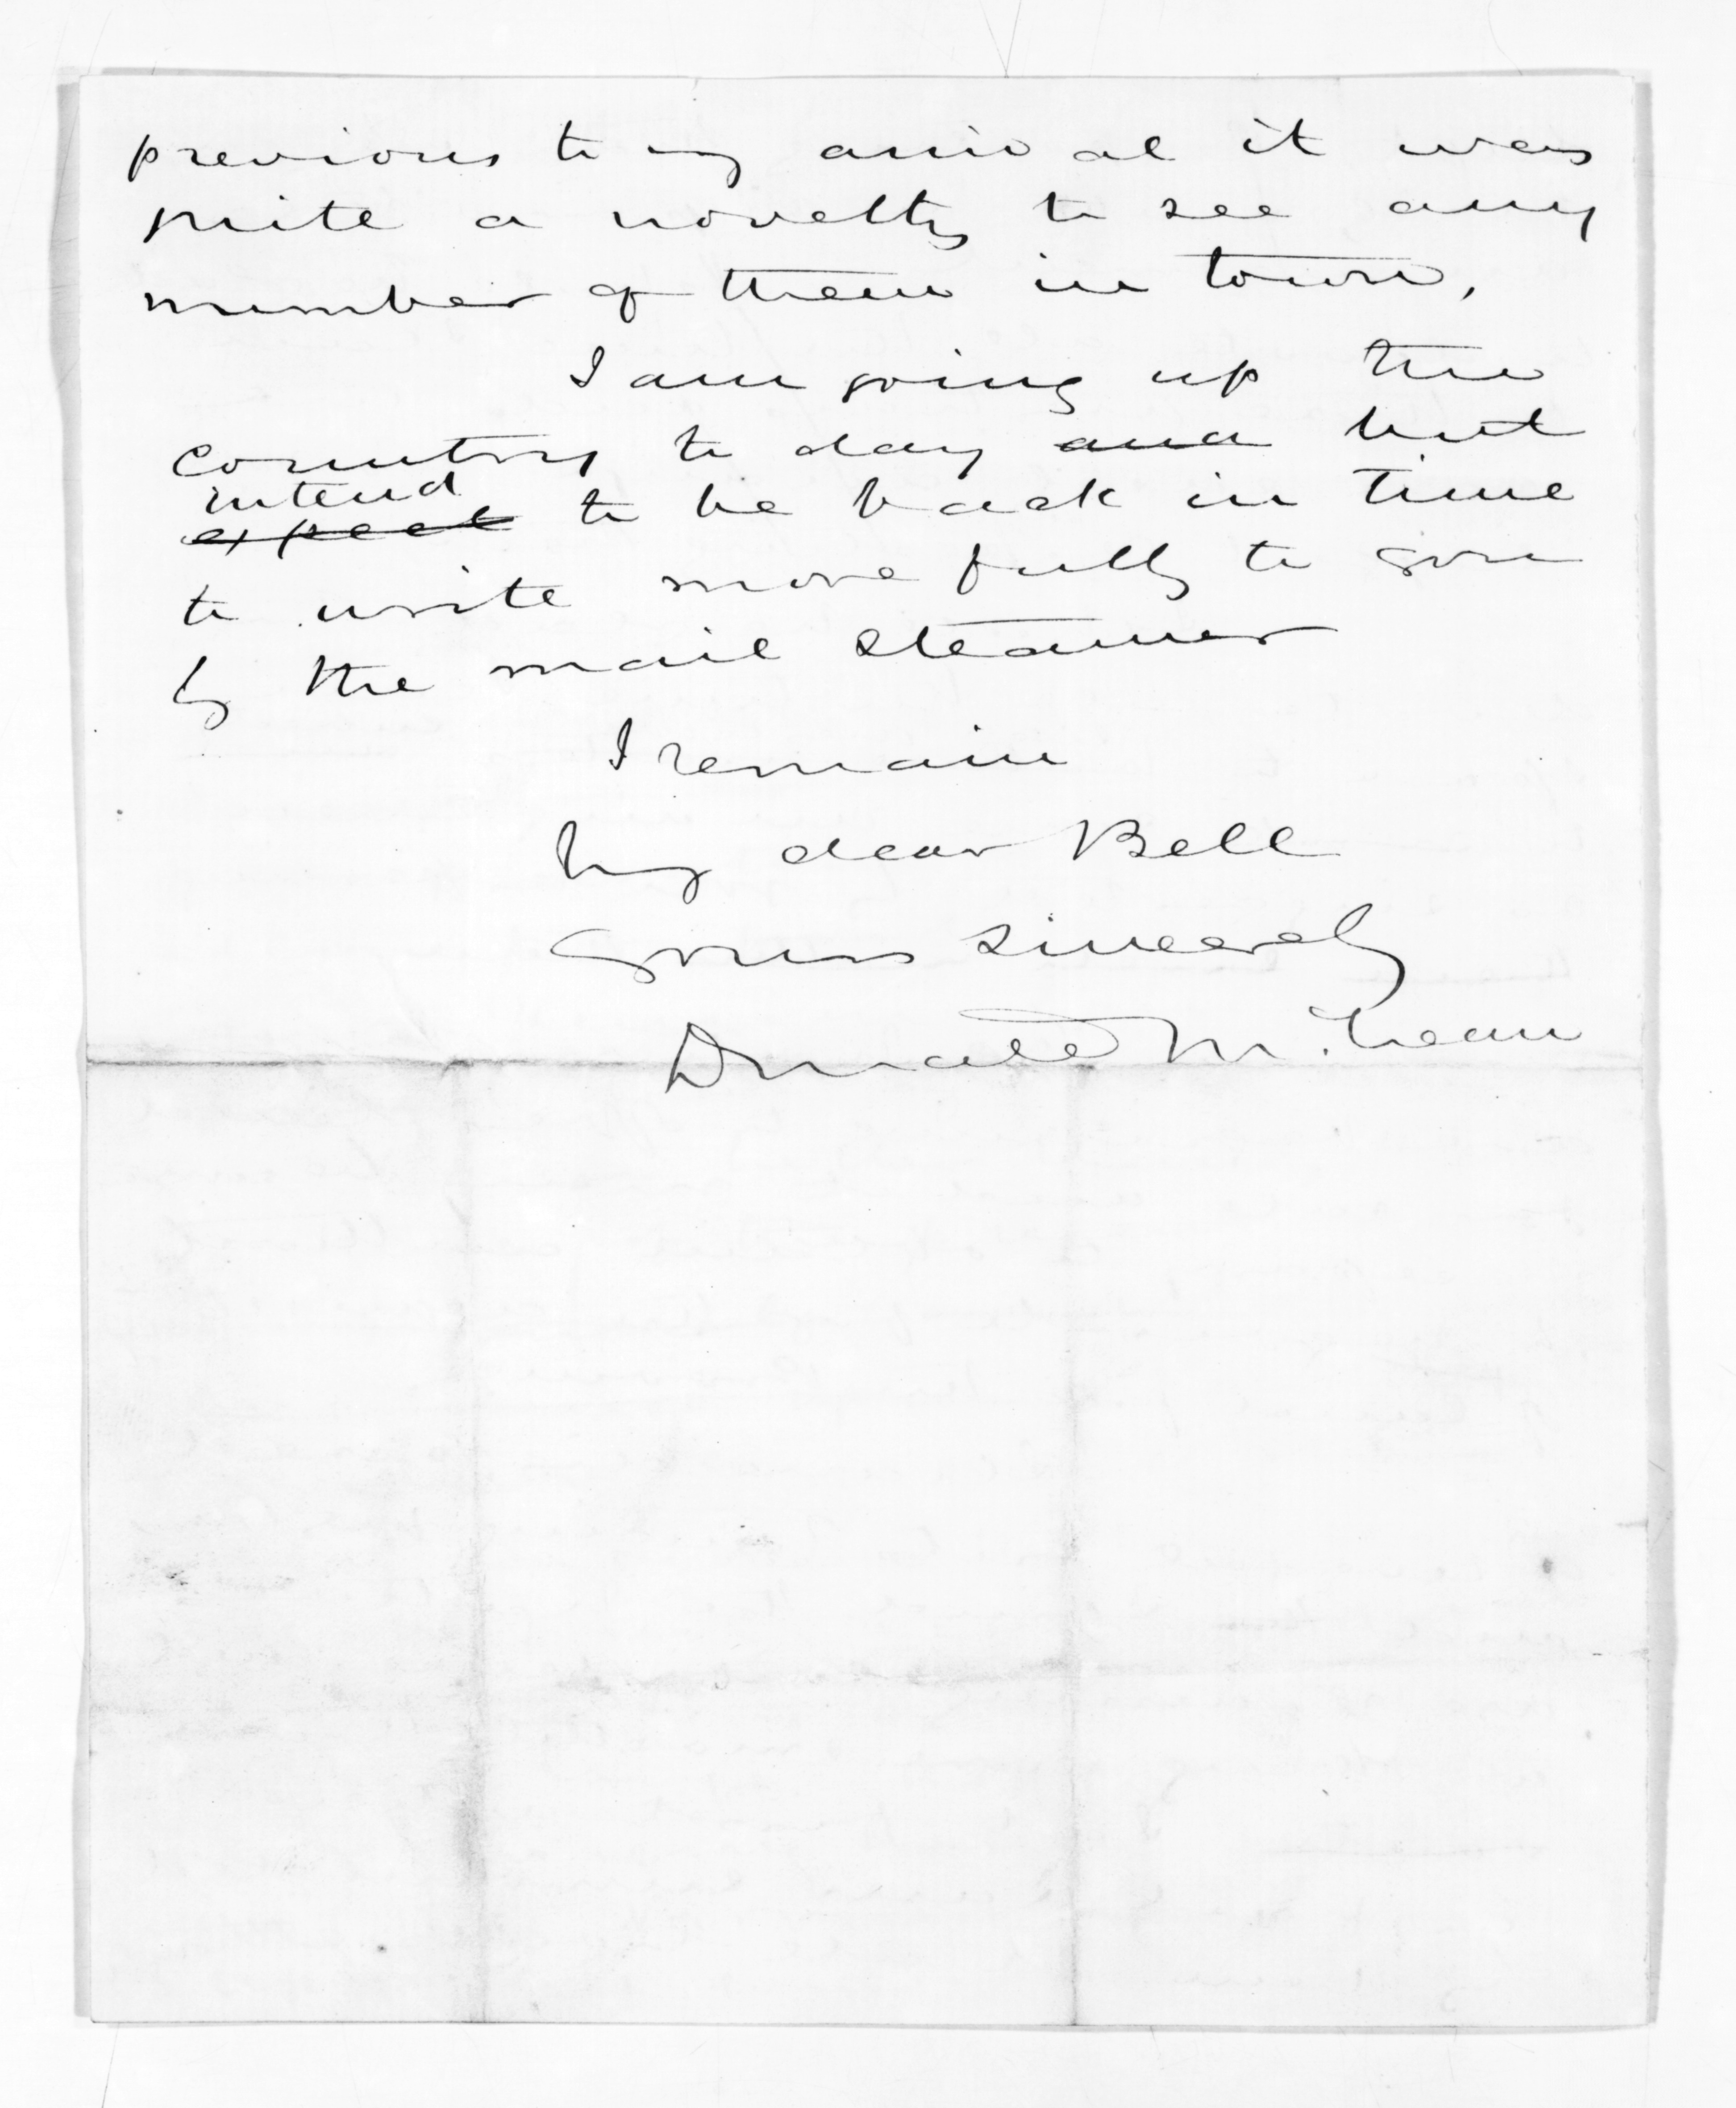 previous to my arrival it was
quite a novelty to see any
number of them in town,
I am going up the
country to day and but
intend
expect to be back in time
to write more fully to you
by the mail steamer
I remain
My dear Bell
Yours sincerely
Donald McLean